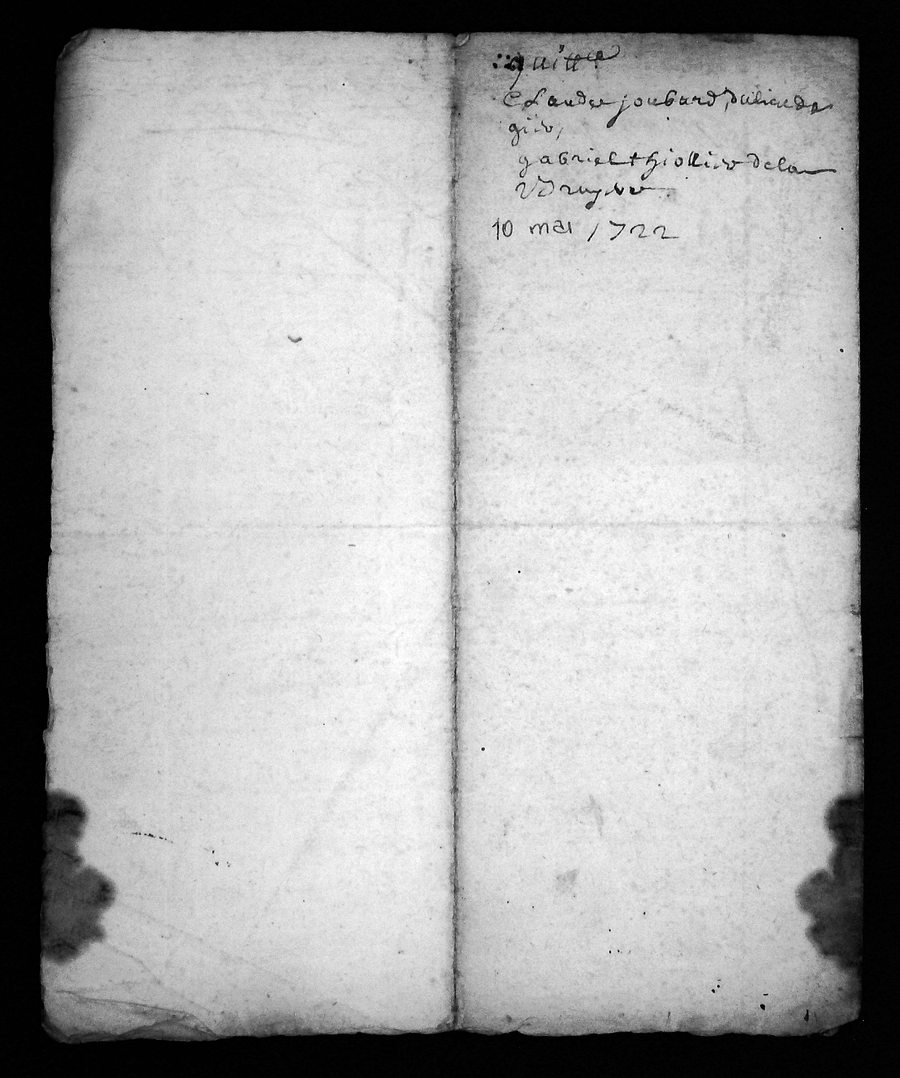 quitte
Claudee joubard, dulieu de
gier,
gabriel thiollier dela
Bruyere
10 mai 1722